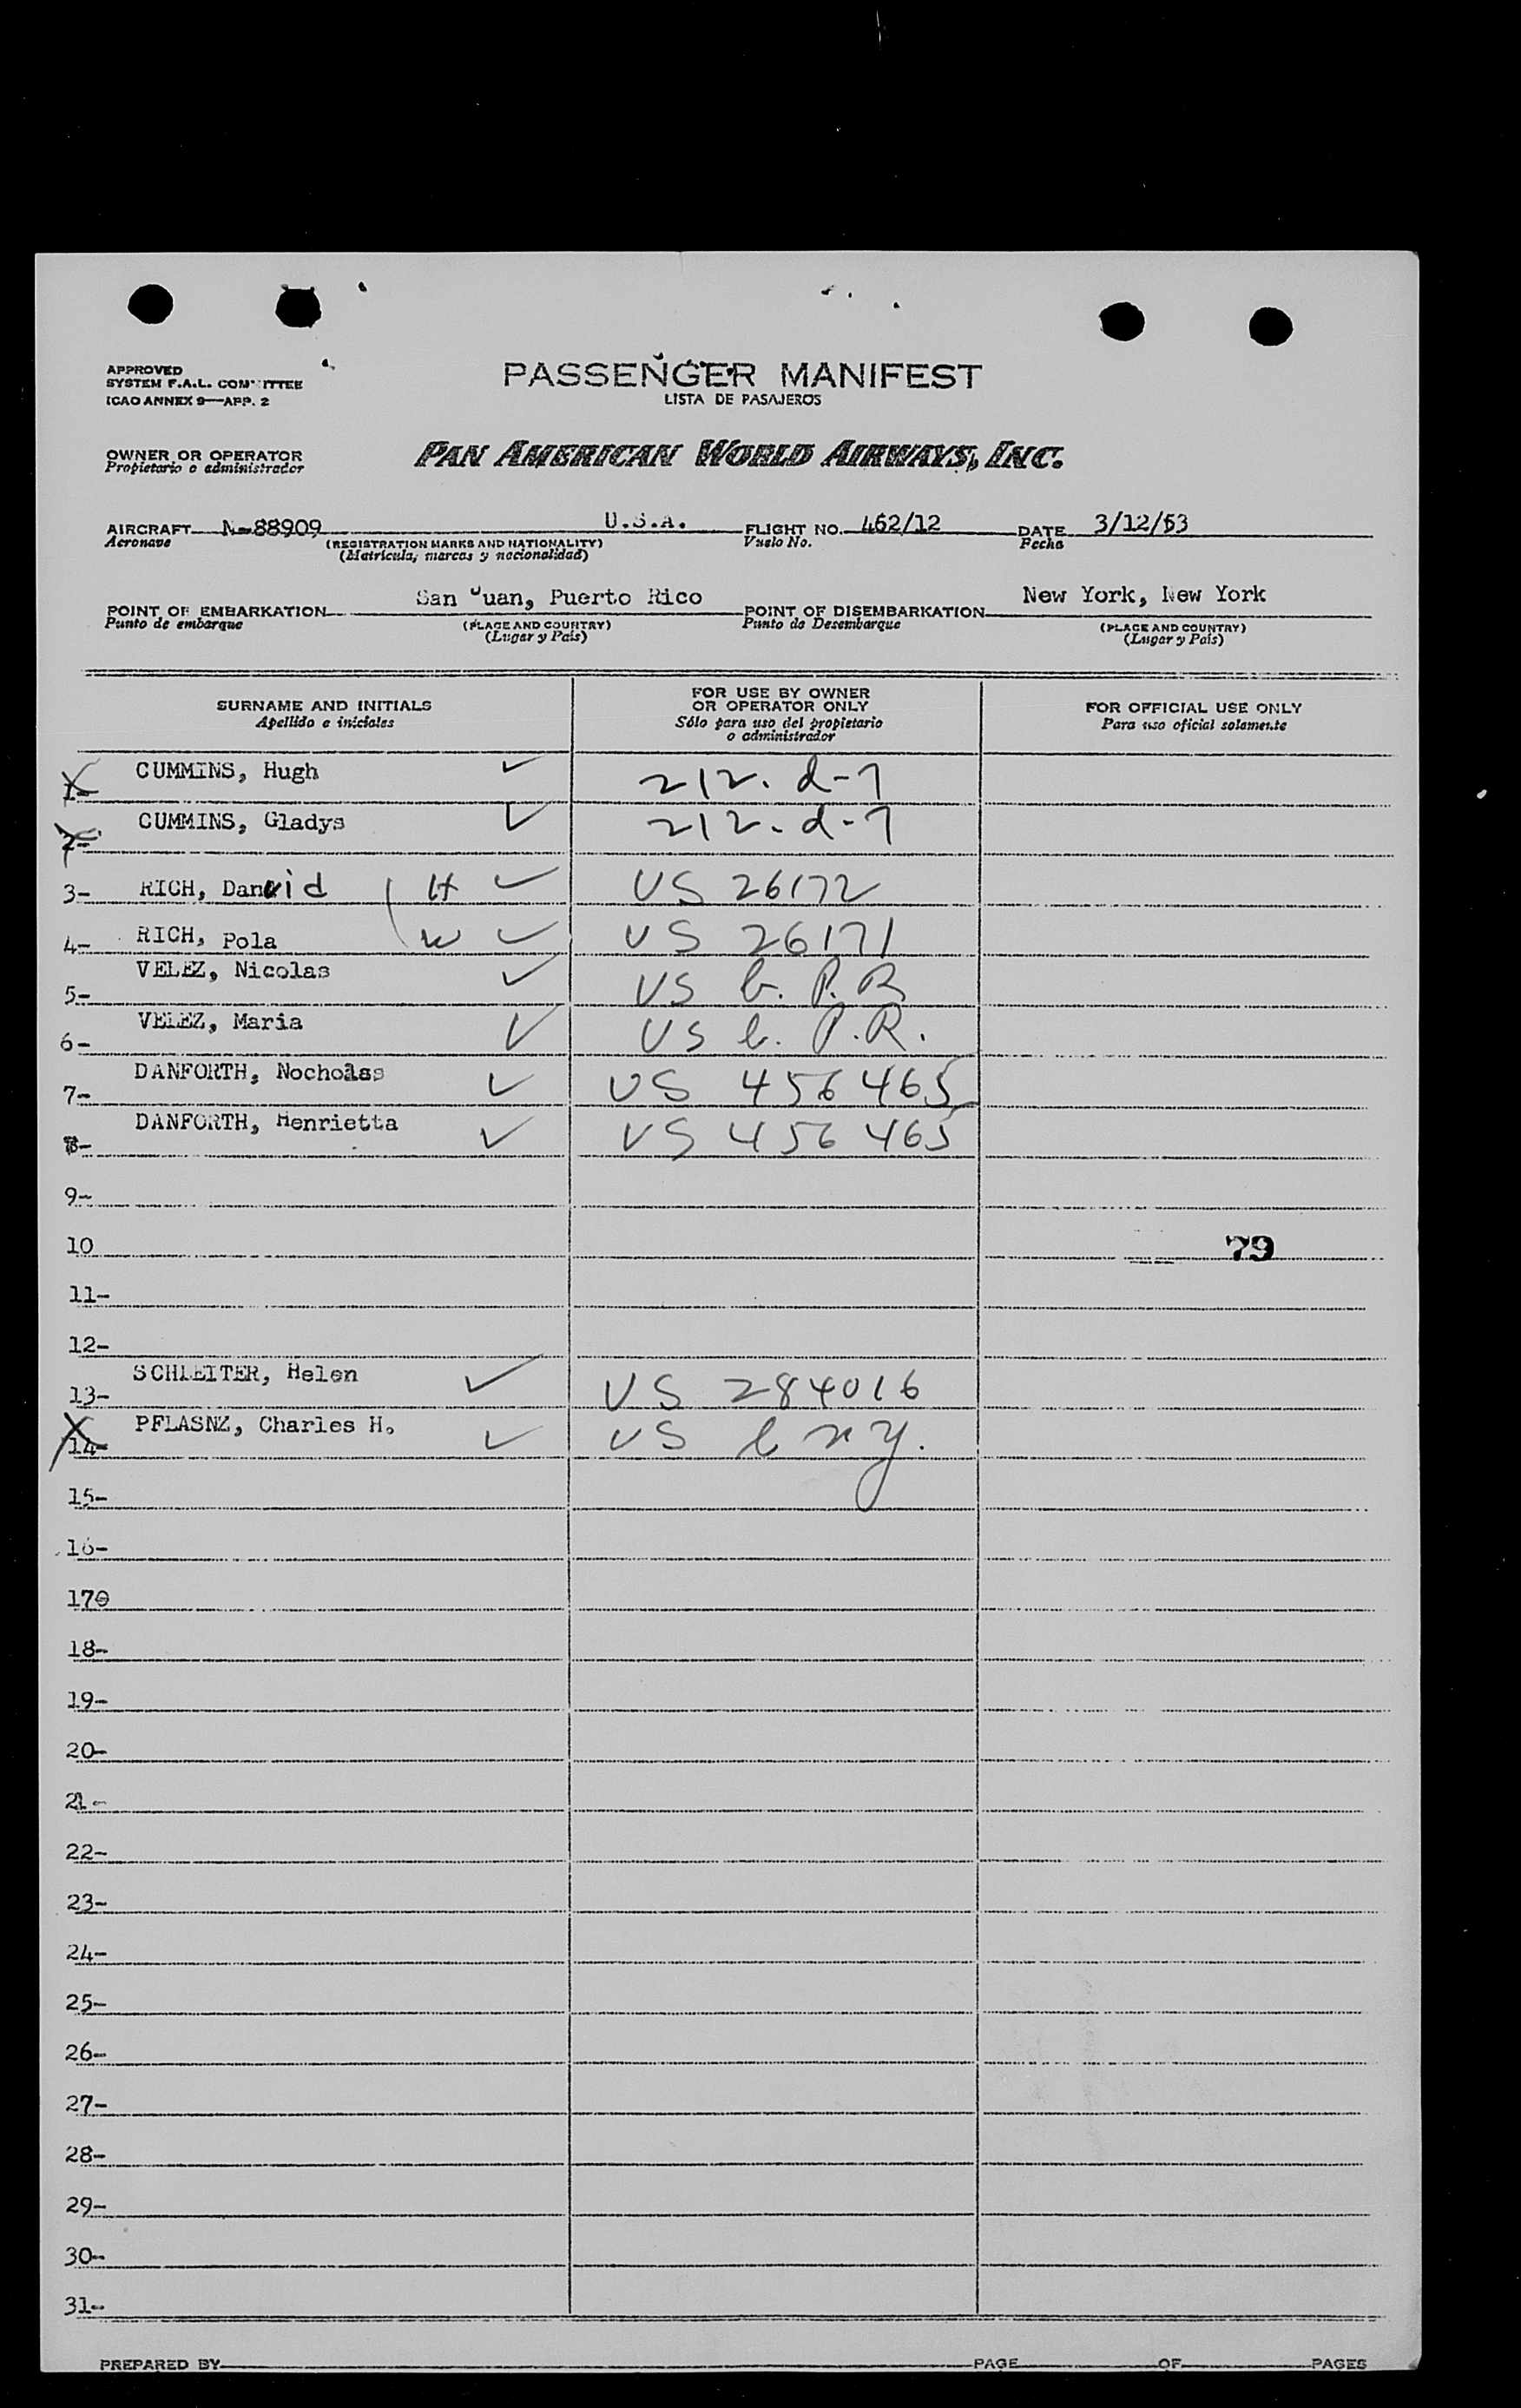 APPROVED
SYSTEM F.A.L. COMMITTEE
ICAO ANNEX 9—APP. 2
PASSENGER MANIFEST
LISTA DE PASAJEROS
OWNER OR OPERATOR
Propietario o administrador
PAN AMERICAN WORLD AIRWAYS, INC.
AIRCRAFT N-88909 U.S.A. FLIGHT NO. 462/12 DATE 3/12/53
Aeronave (REGISTRATION MARKS AND NATIONALITY) Vuelo No. Fecha
(Matricula, marcas y nacionalidad)
POINT OF EMBARKATION San Juan, Puerto Rico POINT OF DISEMBARKATION New York, New York
Punto de embarque (PLACE AND COUNTRY) Punto de Desembarque (PLACE AND COUNTRY)
(Lugar y País) (Lugar y País)
SURNAME AND INITIALS
Apellido e iniciales
FOR USE BY OWNER
OR OPERATOR ONLY
Sólo para uso del propietario
o administrador
FOR OFFICIAL USE ONLY
Para uso oficial solamente
1- CUMMINS, Hugh ✓ 212. d-7
2- CUMMINS, Gladys ✓ 212. d-7
3- RICH, Danvid H ✓ US 26172
4- RICH, Pola W ✓ US 26171
5- VELEZ, Nicolas ✓ US b. P.R
6- VELEZ, Maria ✓ US b. P.R.
7- DANFORTH, Nocholas ✓ US 456465
8- DANFORTH, Henrietta ✓ US 456465
9-
10 79
11-
12-
13- SCHLEITER, Helen ✓ US 284016
14- PFLASNZ, Charles H. ✓ US b NY.
15-
16-
170
18-
19-
20-
21-
22-
23-
24-
25-
26-
27-
28-
29-
30-
31-
PREPARED BY PAGE OF PAGES